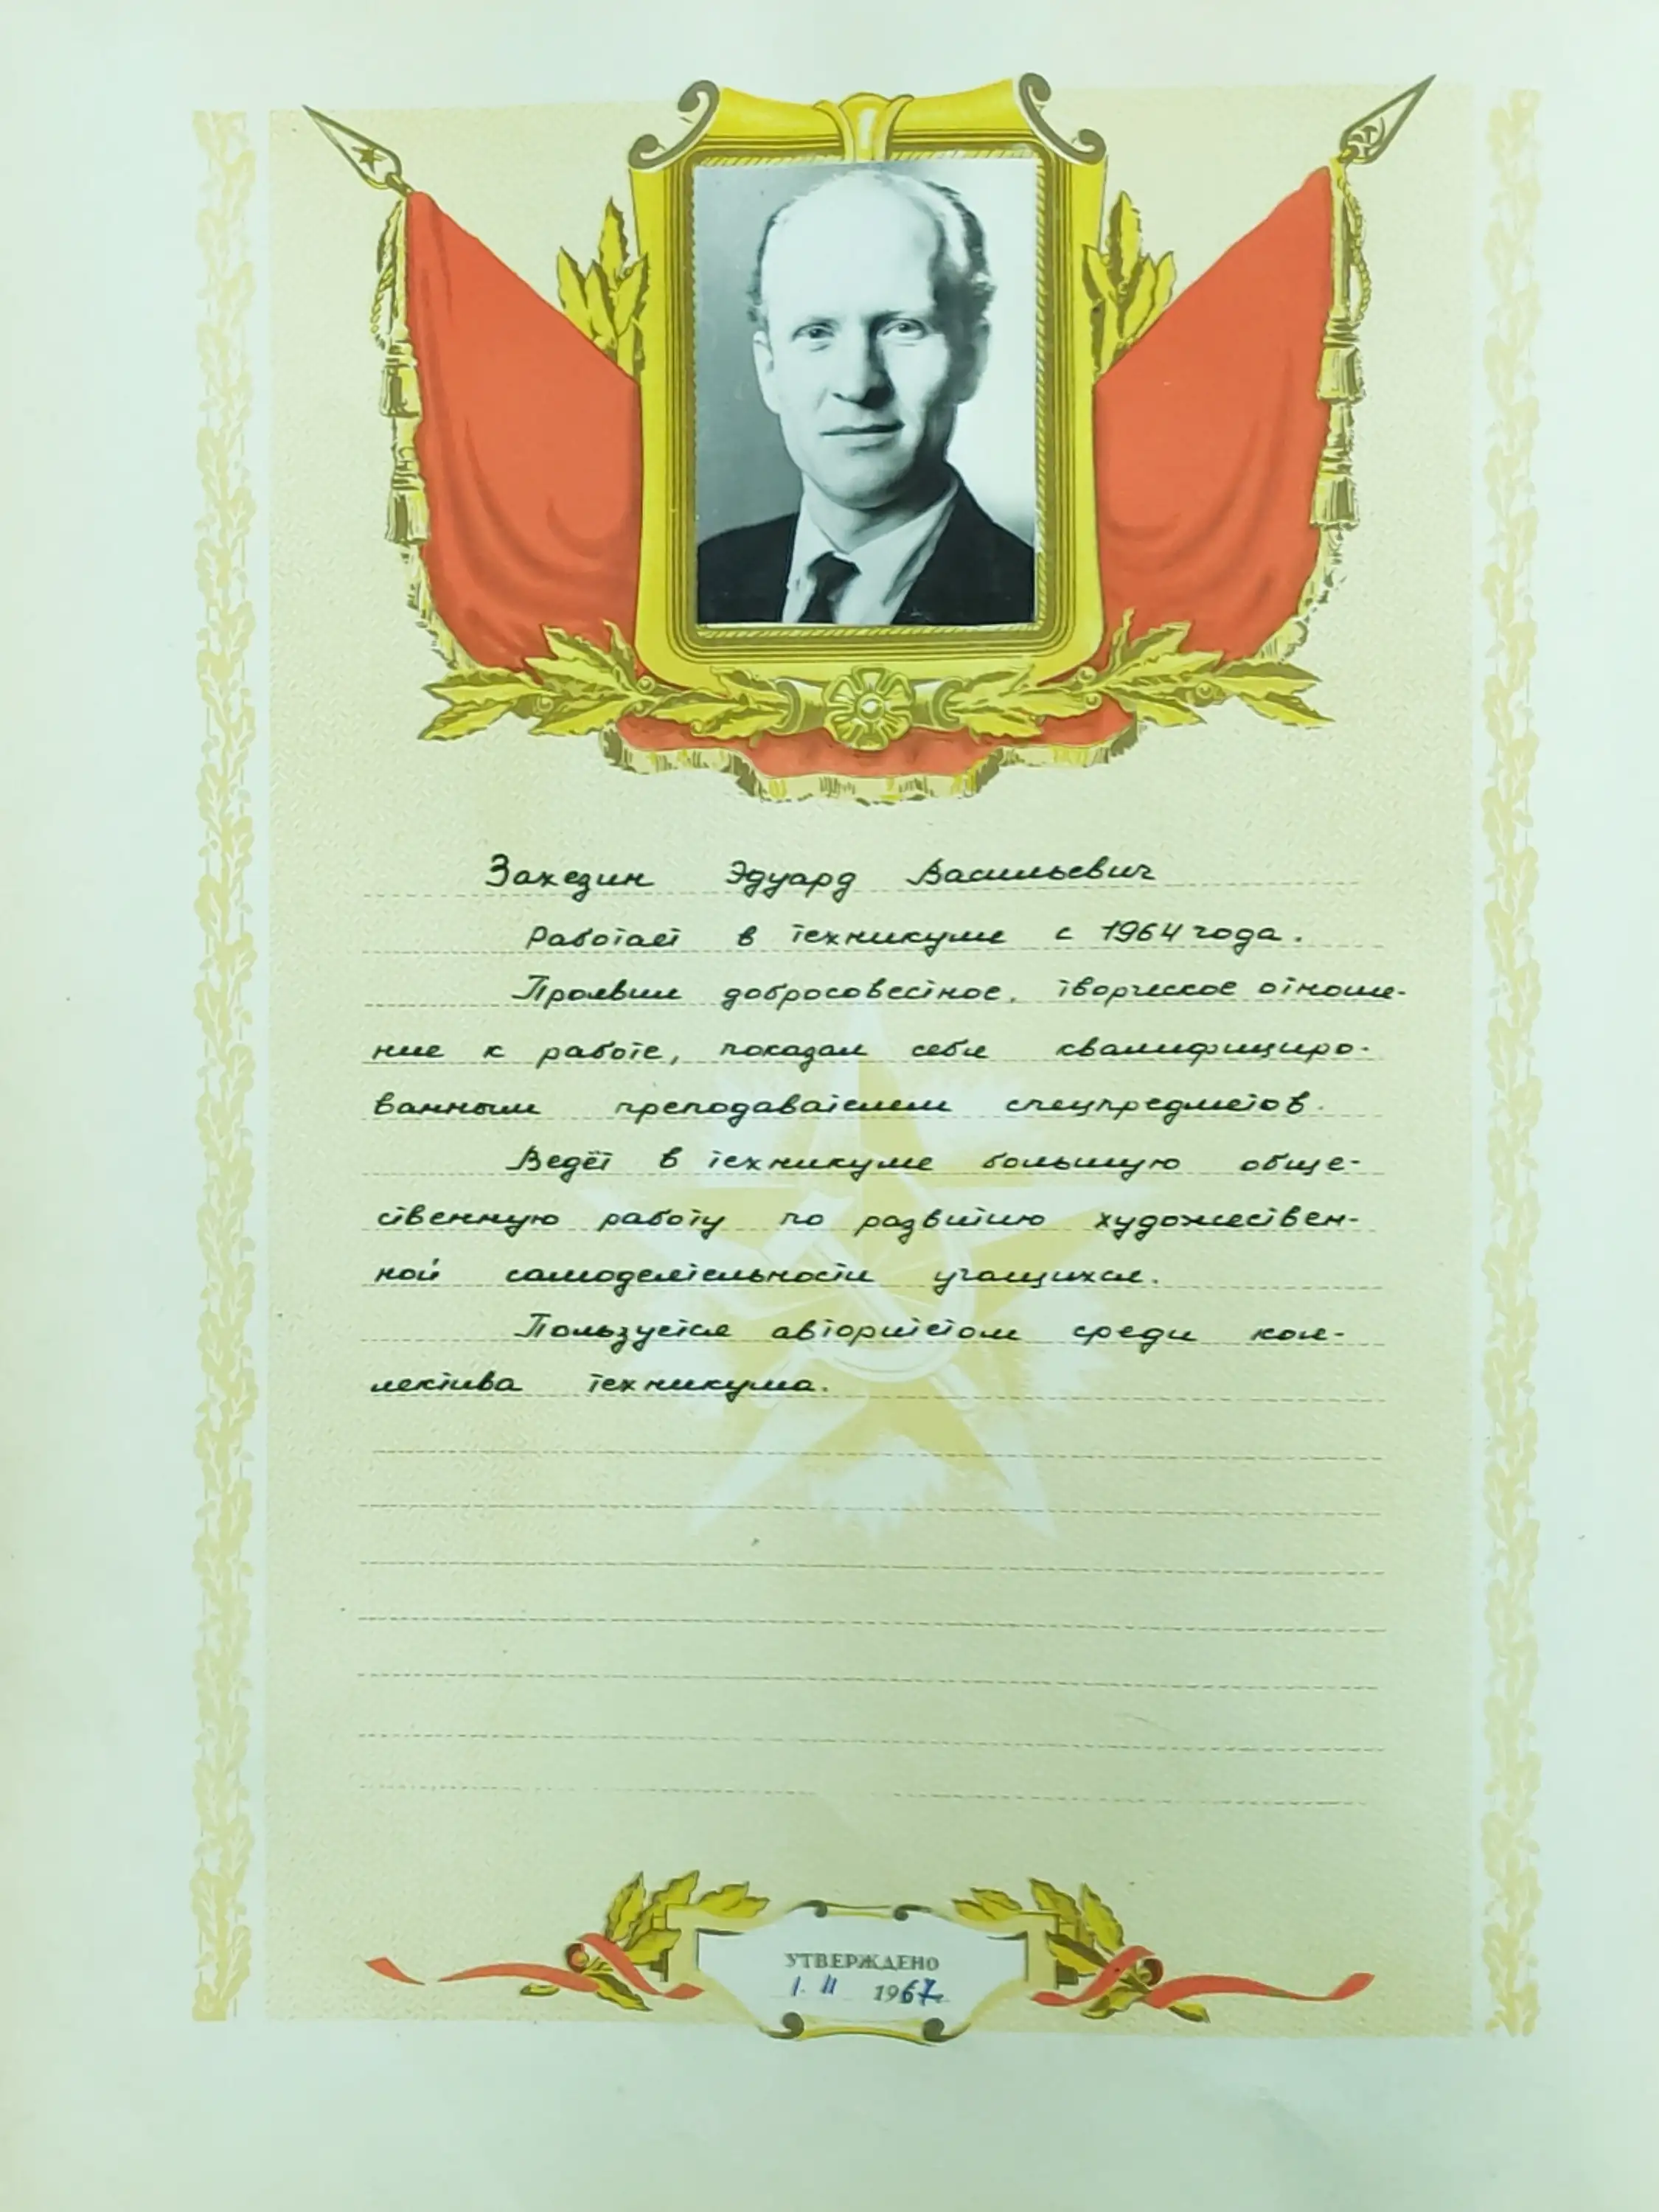 Захезин Эдуард Васильевич
Работает в техникуме с 1964 года.
Проявил добросовестное, творческое отноше-
ние к работе, показал себя квалифициро-
ванным преподавателем спецпредметов.
Ведёт в техникуме большую обще-
ственную работу по развитию художествен-
ной самодеятельности учащихся.
Пользуется авторитетом среди кол-
лектива техникума.
УТВЕРЖДЕНО
1. II 1967г.